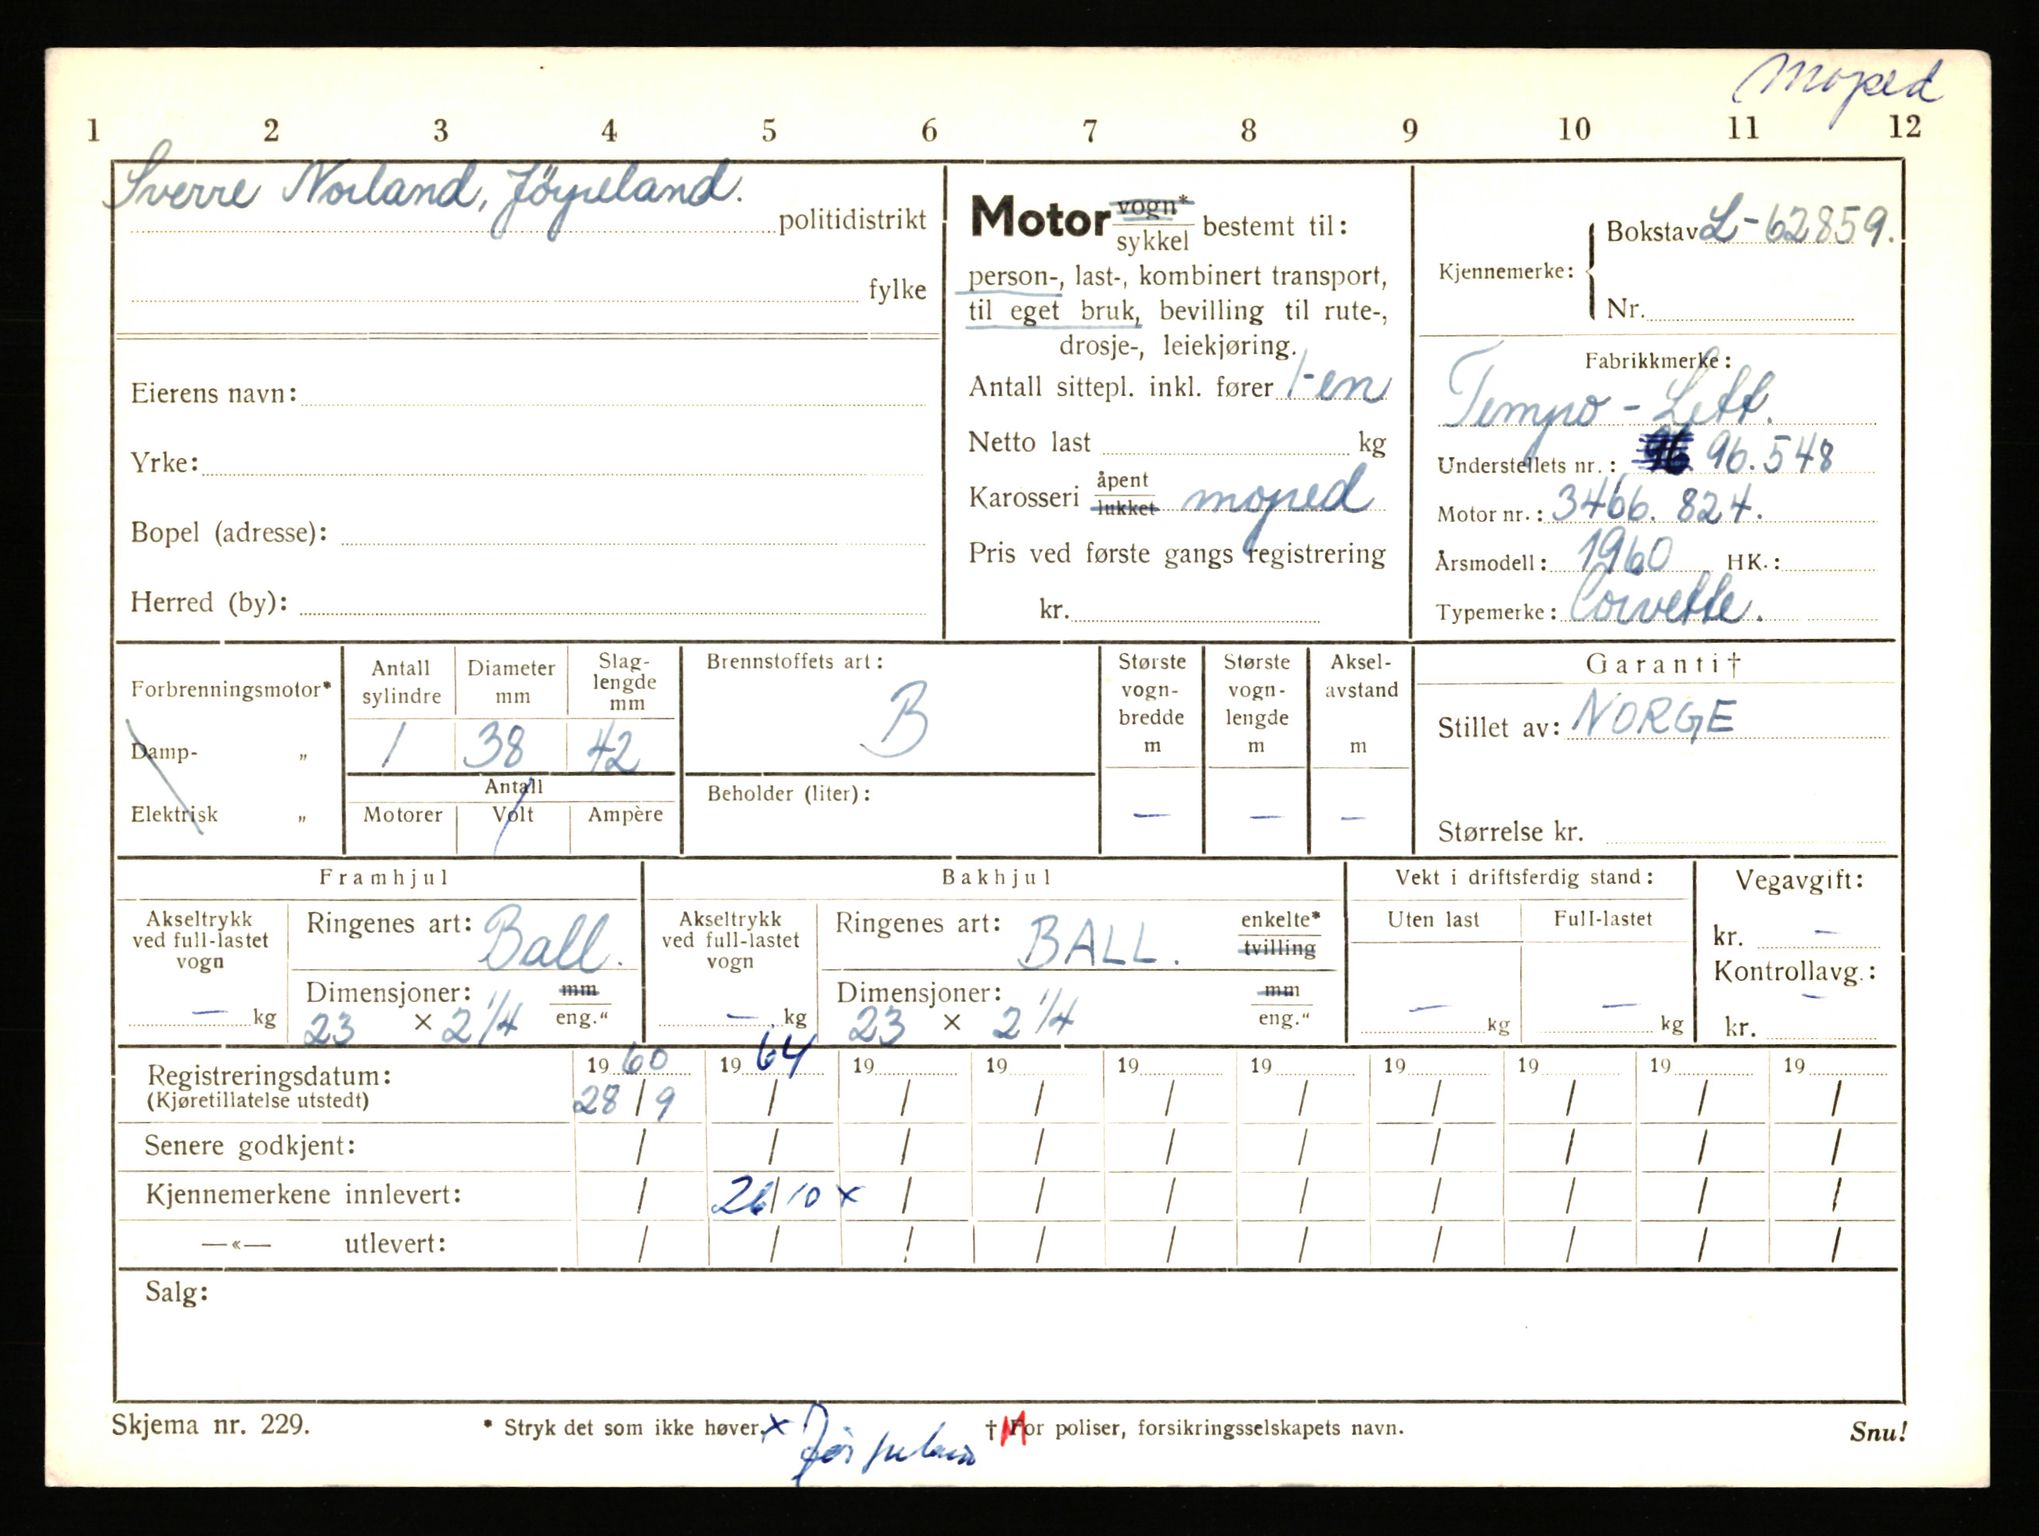 Moped
1 2 3 4 5 6 7 8 9 10 11 12
Sverre Norland, Jörpeland.
politidistrikt
fylke
Eierens navn:
Yrke:
Bopel (adresse):
Herred (by):
Motor vogn* sykkel bestemt til:
person-, last-, kombinert transport,
til eget bruk, bevilling til rute-,
drosje-, leiekjøring.
Antall sittepl. inkl. fører 1-en
Netto last kg
Karosseri åpent lukket moped
Pris ved første gangs registrering
kr.
Kjennemerke:
Bokstav L-62859.
Nr.
Fabrikkmerke:
Tempo - Lett.
Understellets nr.: 96.548
Motor nr.: 3466.824.
Årsmodell: 1960 HK.:
Typemerke: Corvette.
Forbrenningsmotor*
Damp- „
Elektrisk „
Antall sylindre
1
Diameter mm
38
Slag- lengde mm
42
Antall
Motorer Volt Ampère
Brennstoffets art:
B
Beholder (liter):
Største vogn- bredde m
—
Største vogn- lengde m
—
Aksel- avstand m
—
Garanti†
Stillet av: NORGE
Størrelse kr.
Framhjul
Akseltrykk ved full-lastet vogn
— kg
Ringenes art: Ball.
Dimensjoner: mm eng."
23 × 2 1/4
Bakhjul
Akseltrykk ved full-lastet vogn
— kg
Ringenes art: BALL. enkelte* tvilling
Dimensjoner: mm eng."
23 × 2 1/4
Vekt i driftsferdig stand:
Uten last Full-lastet
— kg — kg
Vegavgift:
kr. —
Kontrollavg.:
—
kr.
Registreringsdatum: 1960 1964 19 19 19 19 19 19 19 19
(Kjøretillatelse utstedt) 28/9 / / / / / / / / /
Senere godkjent: / / / / / / / / / /
Kjennemerkene innlevert: / 26/10 x / / / / / / / /
—«— utlevert: / / / / / / / / / /
Salg:
Skjema nr. 229.
* Stryk det som ikke høver.
x Jørpeland
† For poliser, forsikringsselskapets navn.
M
Snu!